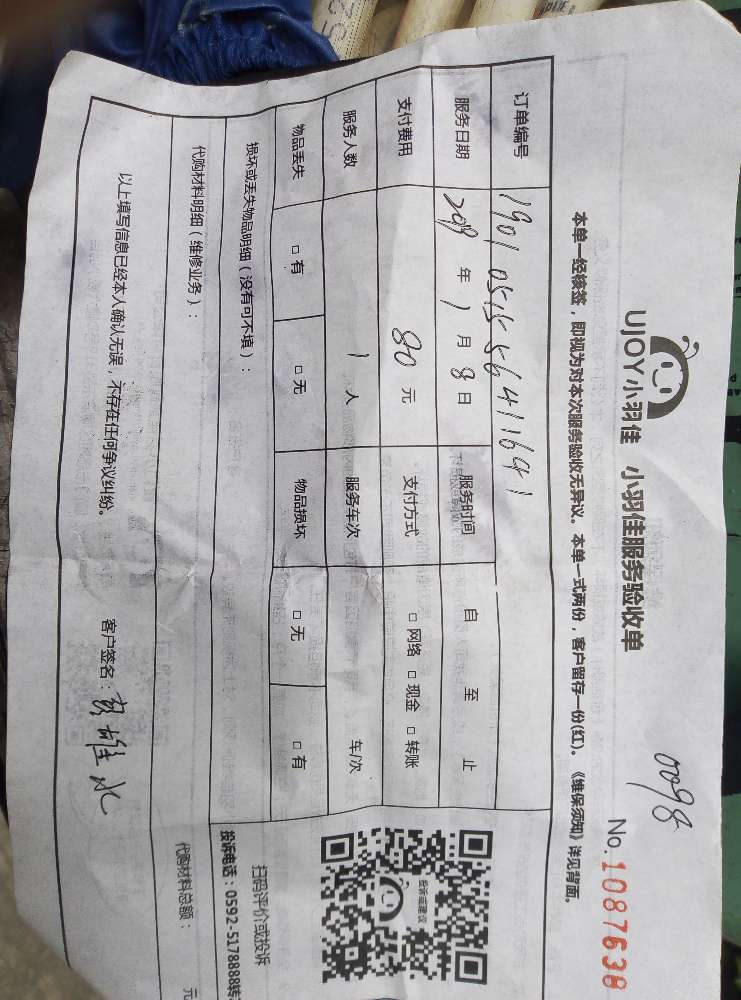 0098
UJOY小羽佳 小羽佳服务验收单
No.1087638
本单一经核签，即视为对本次服务验收无异议。本单一式两份，客户留存一份(红)。《维保须知》详见背面。
订单编号 190105155641641
服务日期 2019 年 1 月 8 日 服务时间 自 至 止
支付费用 80 元 支付方式 □ 网络 □ 现金 □ 转账
服务人数 1 人 服务车次 车/次
物品丢失 □ 有 □ 无 物品损坏 □ 无 □ 有
损坏或丢失物品明细（没有可不填）：
代购材料明细（维修业务）： 代购材料总额： 元
投诉或建议
扫码评价或投诉
投诉电话：0592-5178888转
以上填写信息已经本人确认无误，不存在任何争议纠纷。 客户签名：